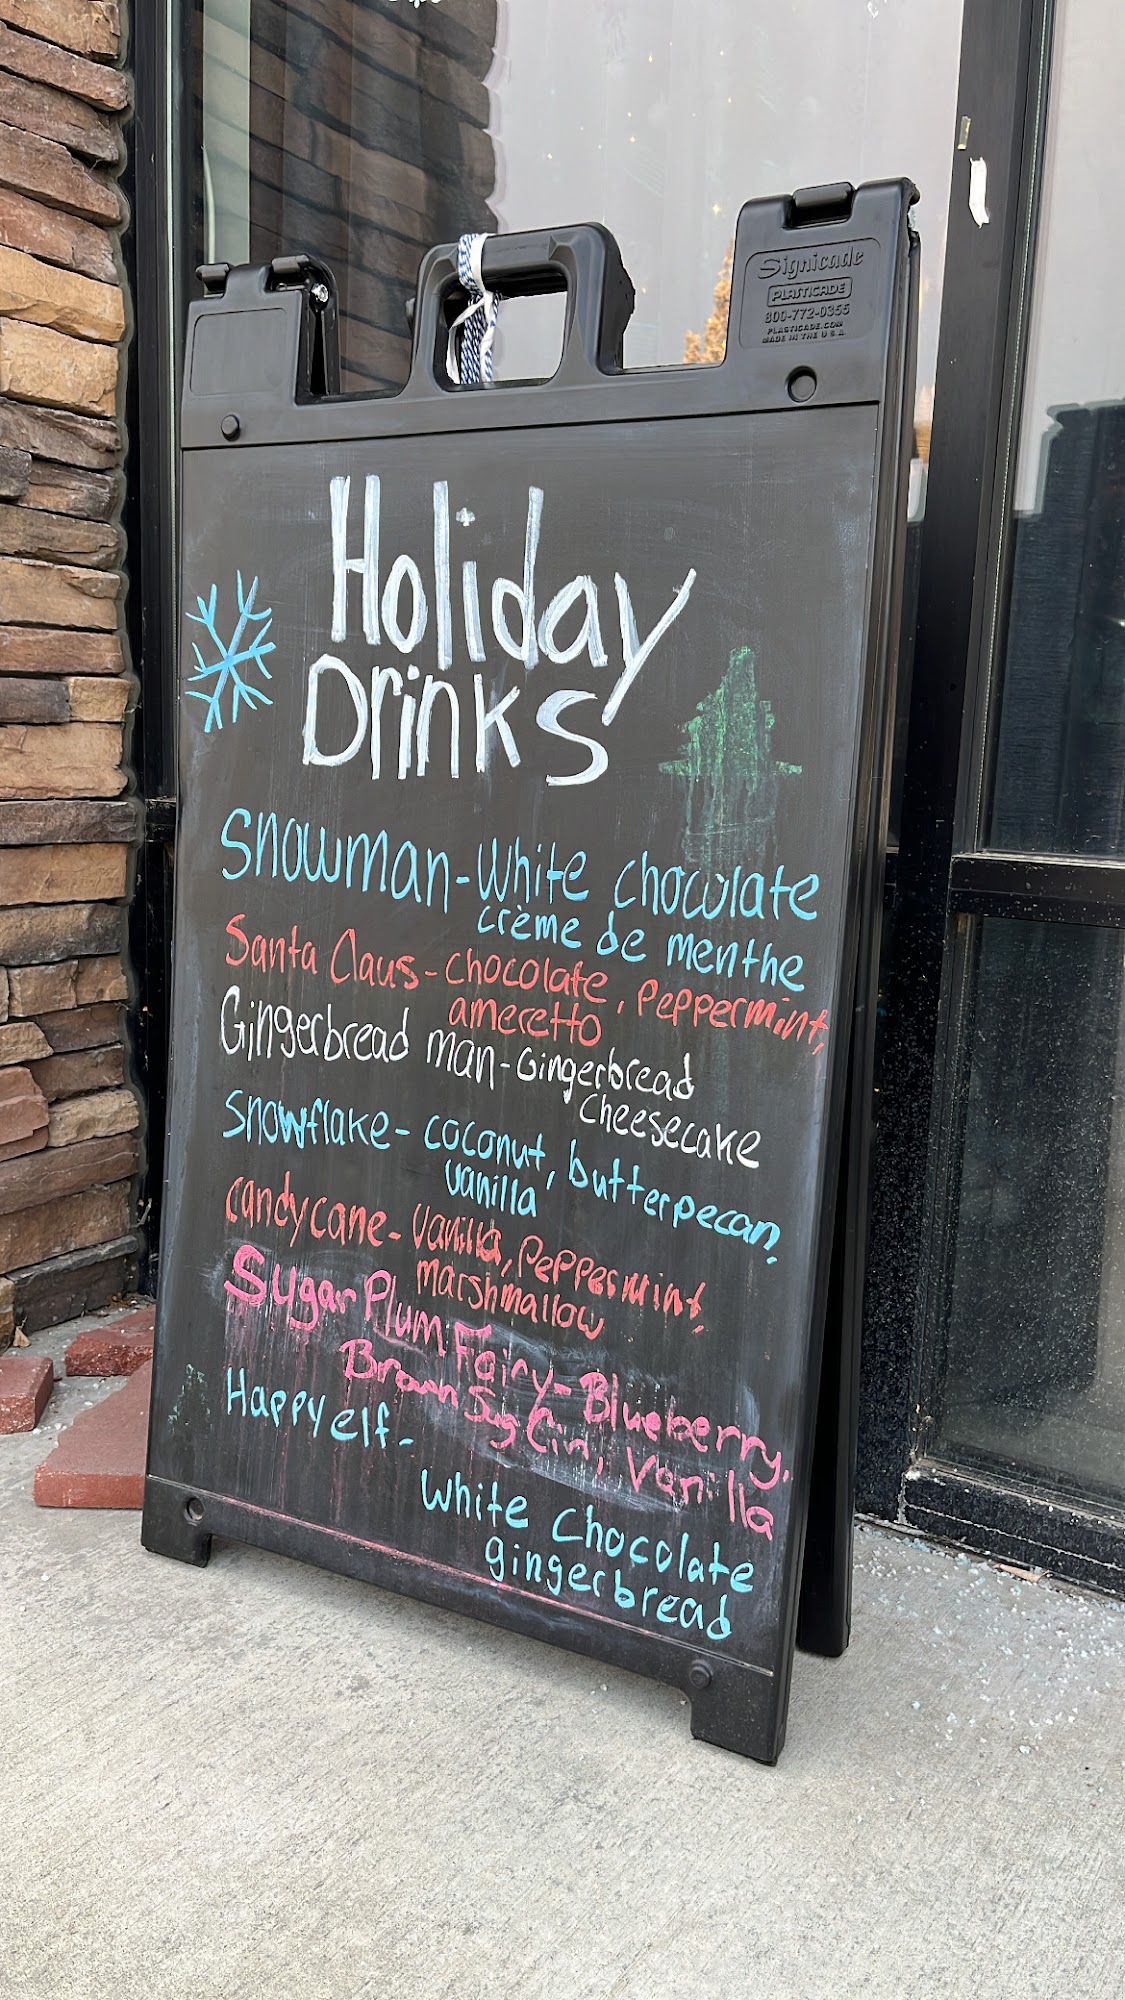 Signicade
PLASTICADE
800-772-0355
PLASTICADE.COM
MADE IN THE U.S.A.
Holiday
Drinks
Snowman-White chocolate
crème de menthe
Santa Claus-chocolate, Peppermint,
ameretto
Gingerbread man-Gingerbread
Cheesecake
Snowflake-coconut, butterpecan,
vanilla
candycane-Vanilla, Peppermint,
Marshmallow
Sugar Plum Fairy-Blueberry,
Brown Sug Cin, Vanilla
Happy elf-
White Chocolate
gingerbread